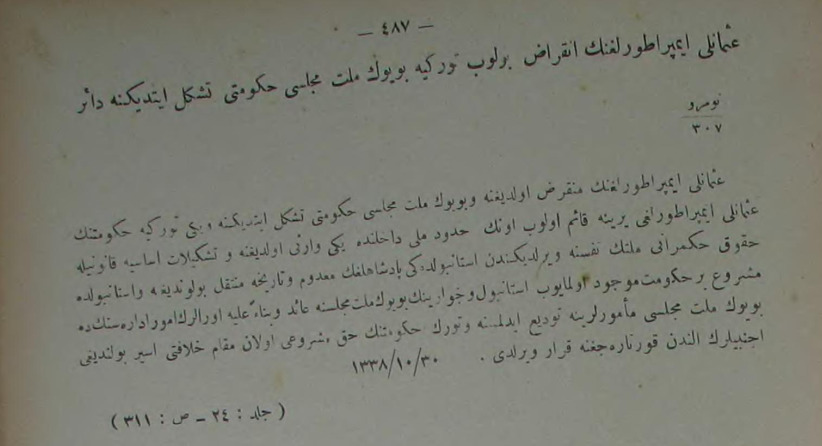 — ٤٨٧ —
عثمانلی ایمپراطورلغنك انقراض بولوب توركیه بویوك ملت مجلسی حكومتی تشكل ایتدیكنه دائر
نومرو
٣٠٧
عثمانلی ایمپراطورلغنك منقرض اولدیغنه وبویوك ملت مجلسی حكومتی تشكل ایتدیكنه ویكی توركیه حكومتنك
عثمانلی ایمپراطورلغی یرینه قائم اولوب اونك حدود ملی داخلنده یكی وارثی اولدیغنه و تشكیلات اساسیه قانونیله
حقوق حكمرانی ملتك نفسنه ویرلدیكندن استانبولده‌كی پادشاهلغك معدوم وتاریخه منتقل بولوندیغنه واستانبولده
مشروع بر حكومت موجود اولمایوب استانبول وجوارینك بویوك ملت مجلسنه عائد وبناءً علیه اورالرك امور اداره‌سنك ده
بویوك ملت مجلسی مأمورلرینه تودیع ایدلمسنه وتورك حكومتنك حق مشروعی اولان مقام خلافتی اسیر بولندیغی
اجنبیلرك الندن قورتاره‌جغنه قرار ویرلدی . ٣٠/١٠/١٣٣٨
( جلد : ٢٤ ـ ص : ٣١١ )